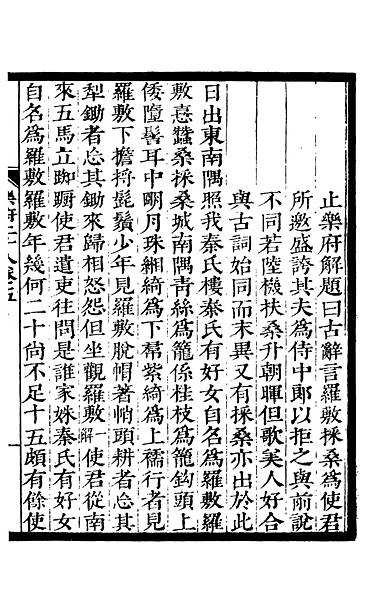 止樂府解題曰古辭言羅敷採桑爲使君
所邀盛誇其夫爲侍中郎以拒之與前說
不同若陸機扶桑升朝暉但歌美人好合
與古詞始同而末異又有採桑亦出於此
日出東南隅照我秦氏樓秦氏有好女自名爲羅敷羅
敷憙蠶桑採桑城南隅青絲爲籠係桂枝爲籠鈎頭上
倭墮髻耳中明月珠緗綺爲下帬紫綺爲上襦行者見
羅敷下擔捋髭鬚少年見羅敷脫帽著帩頭耕者忘其
犁鋤者忘其鋤來歸相怨怨但坐觀羅敷一解使君從南
來五馬立踟蹰使君遣吏往問是誰家姝秦氏有好女
自名爲羅敷羅敷年幾何二十尚不足十五頗有餘使